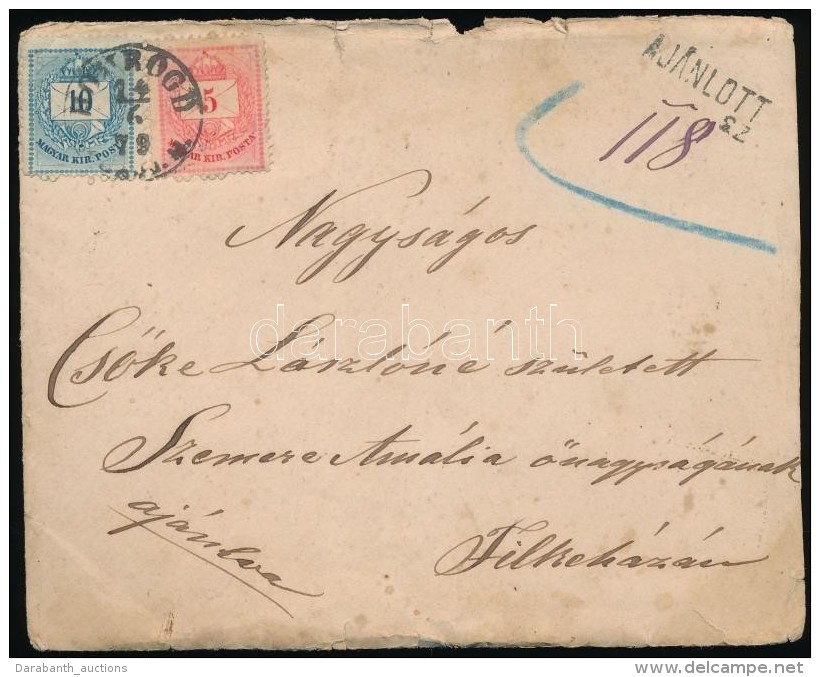 10
MAGYAR KIR. POSTA
5
MAGYAR KIR. POSTA
24
6
79
AJÁNLOTT
SZ
118
Nagyságos
Csőke Lászlóné született
Szemere Amália őnagyságának
ajánlva
Filkeházán
darabanth
Darabanth_auctions
www.delcampe.net